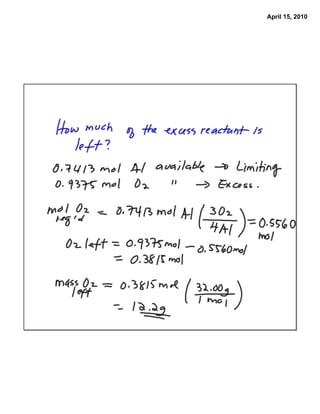 April 15, 2010
How much of the excess reactant is
left?
0.7413 mol Al available → Limiting
0.9375 mol O2 " → Excess.
mol O2 req'd = 0.7413 mol Al (3O2 / 4Al) = 0.5560 mol
O2 left = 0.9375 mol - 0.5560 mol
= 0.3815 mol
mass O2 left = 0.3815 mol (32.00g / 1 mol)
= 12.2g